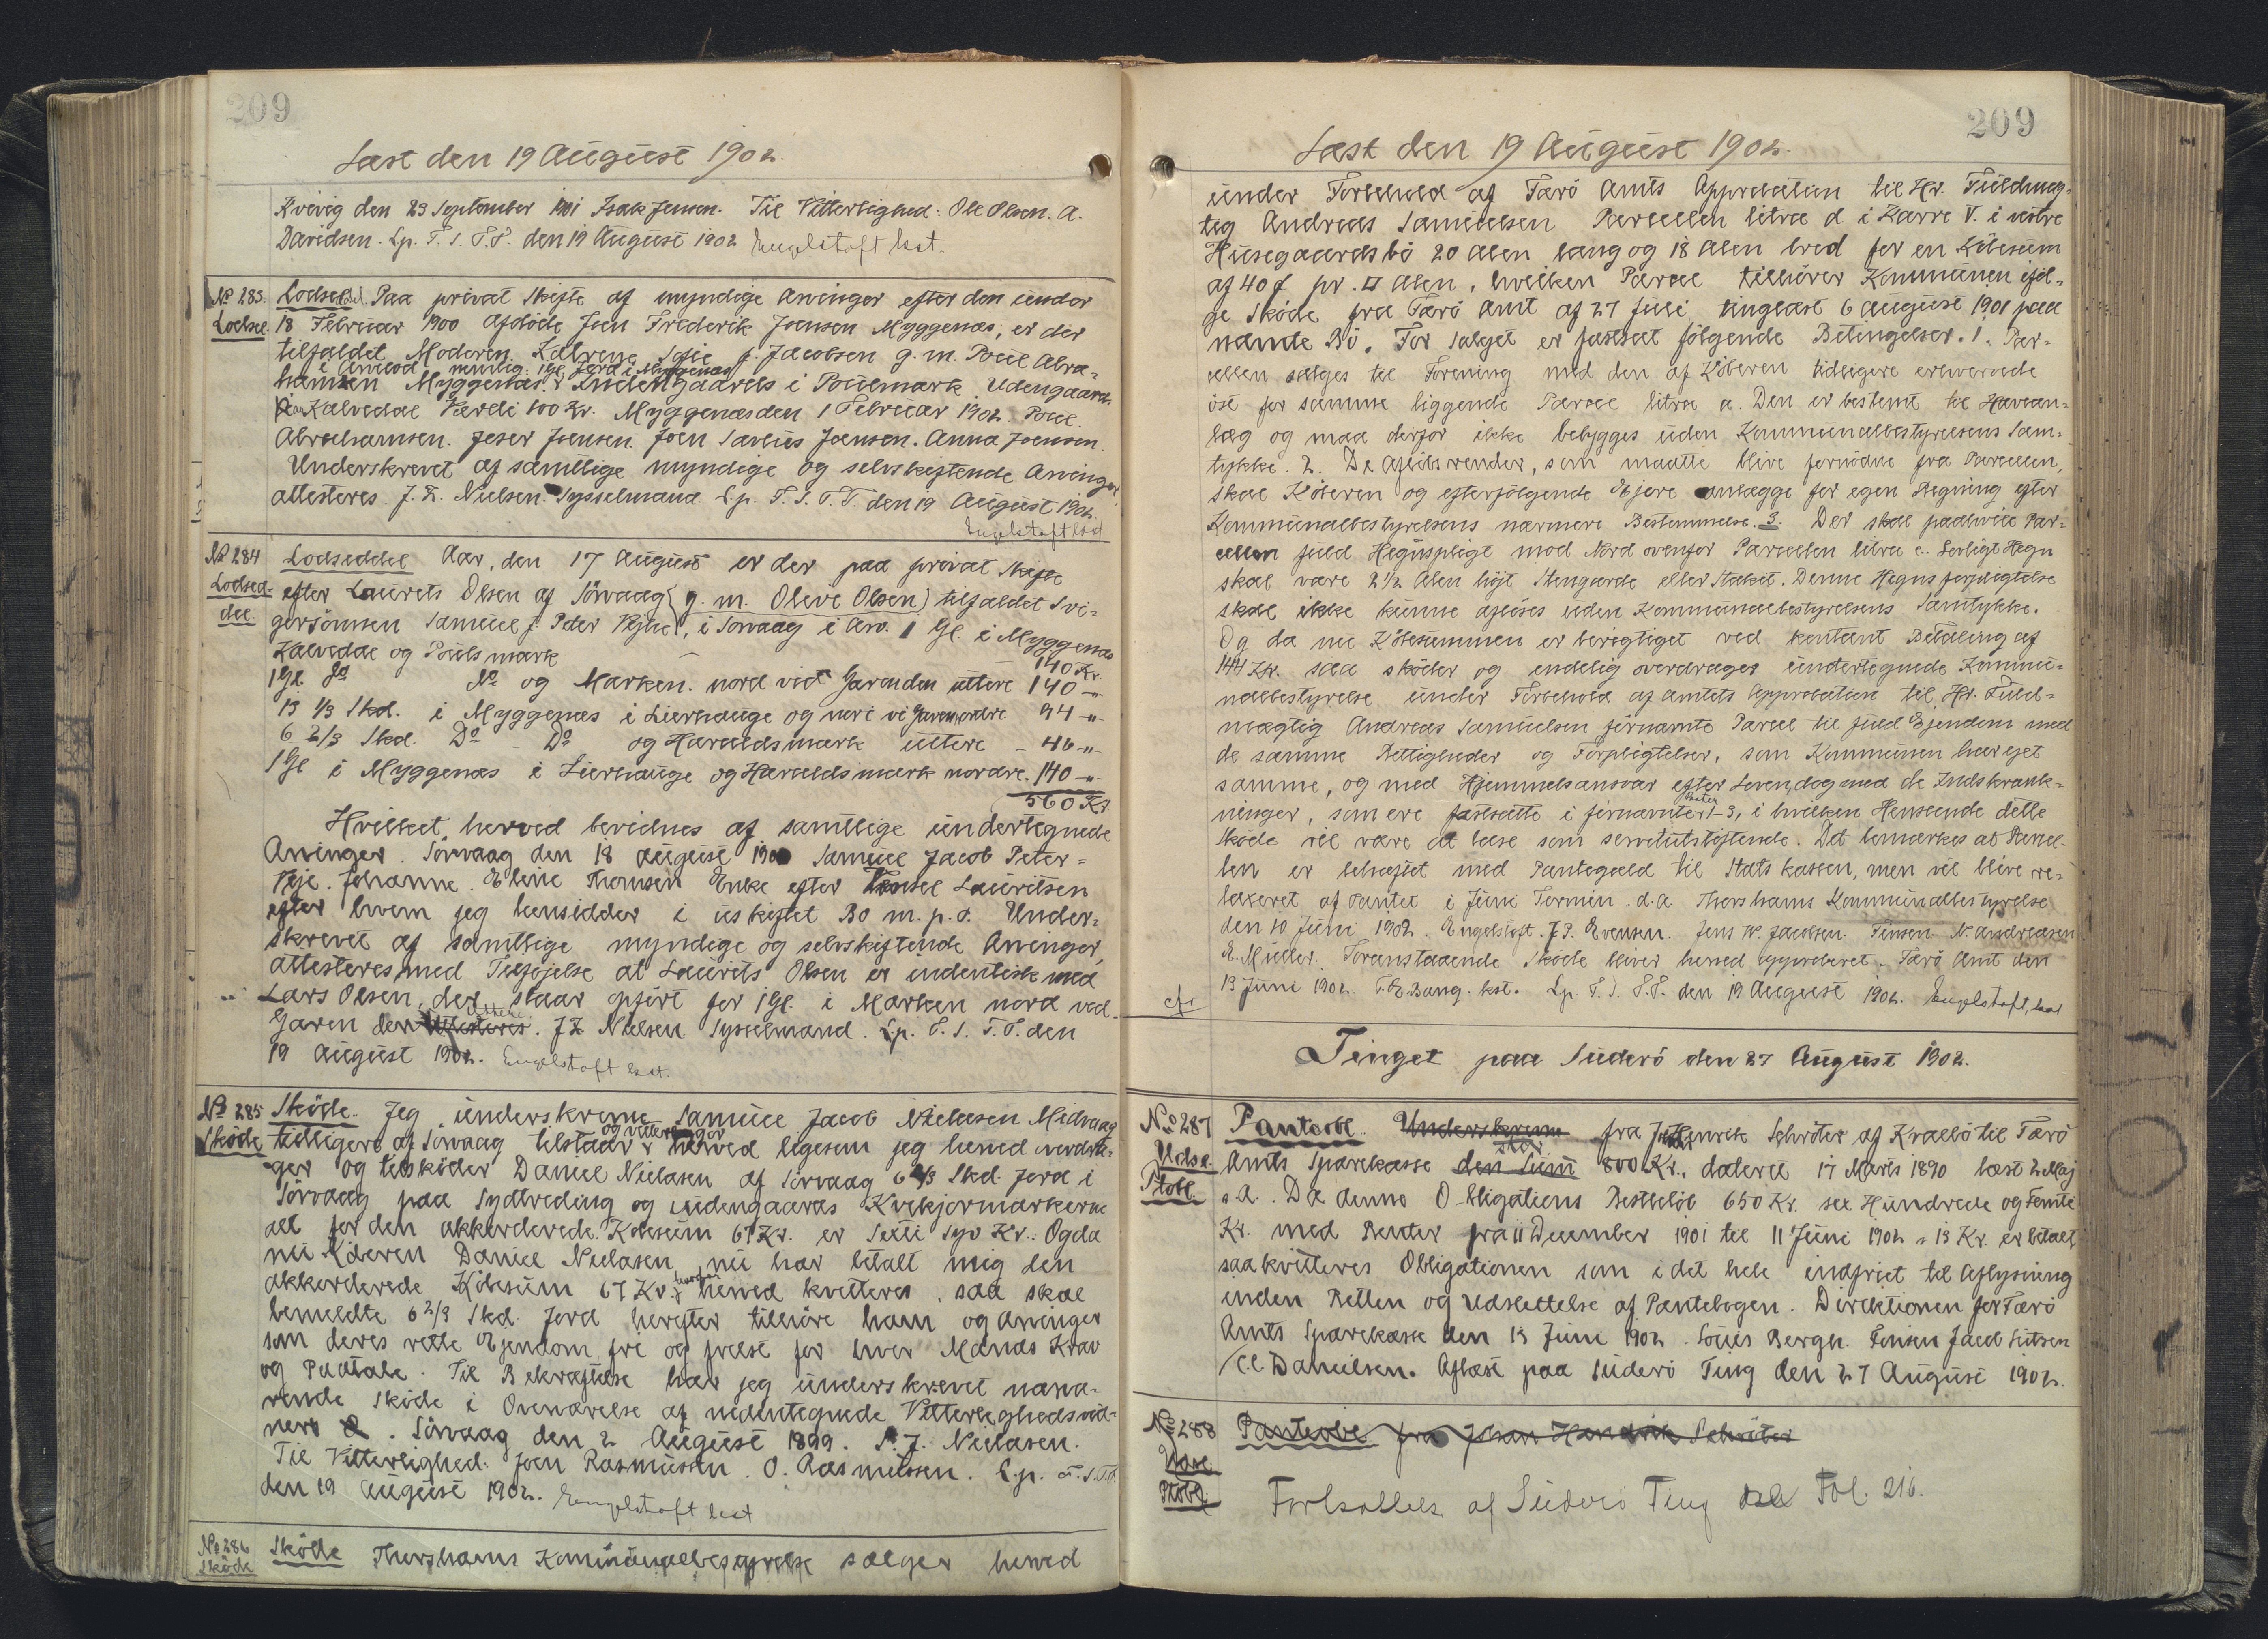 209
Læst den 19 August 1902.
Kvivig den 23 September 1901 Isak Jensen. Til Vitterlighed: Ole Olsen. A.
Davidsen. Lp. F. S. T. P. den 19 August 1902 Engelstoft kst.
No 283. Lodseddel Paa privat Skifte af myndige Arvinger efter den under
Lodsel. 18 Februar 1900 afdöde Joen Frederik Joensen Myggenæs, er der
tilfaldet Moderen Katrene Sofie f. Jacobsen g. m. Poul Abra-
i Arvelod nemlig: 1 Gl. Jord i Myggenæs
hamsen Myggenæs Indengaards i Poulsmark Udengaards
Kalvedal Værdi 100 Kr. Myggenæs den 1 Februar 1902. Poul
Abrahamsen. Joensen. Joen Joensen. Anna Joensen.
Underskrevet af samtlige myndige og selvskiftende Arvinger
attesteres. J. Z. Nielsen Sysselmand Lp. F. S. T. P. den 19 August 1902.
Engelstoft kst
No 284 Lodseddel Aar, den 17 August er der paa privat Skifte
Lodsed- efter Laurits Olsen af Sörvaag (g. m. Oleve Olsen) tilfaldet Svi-
del. gersönnen Samuel J. Peter Vejhe, i Sörvaag i Arv. 1 Gl. i Myggenæs
Kalvedal og Poulsmark 140 Kr.
1 Gl. Do Do og Marken. nord ved Garenden uttere 140 -"-
13 1/3 Skd. i Myggenæs i Lierhauge og nord vi Garen ordre 94 -"-
6 2/3 Skd. Do - Do og Haraldsmark uttere - 46 -"-
1 Gl i Myggenæs i Lierhauge og Haraldsmark nordre. 140 -"-
560 Kr
Hvilket herved bevidnes af samtlige undertegnede
Arvinger. Sörvaag den 18 August 190 Samuel Jacob Peter-
Veje. Johanne. Elene Thomsen Enke efter Lauritsen
efter hvem jeg hensidder i uskiftet Bo m. p. P. Under-
skrevet af samtlige myndige og selvskiftende Arvinger,
attesteres med Tilföjelse at Laurits Olsen er indentisk med
Lars Olsen, der staar opfört for 1 Gl. i Marken nord ved
Garen den uttere. J Z Nielsen Sysselmand. Lp. F. S. T. P. den
19 August 1902. Engelstoft kst.
No 285 Sköde. Jeg underskrevne Samuel Jacob Nielasen Midvaag
Sköde tidligere af Sörvaag tilstaar og vitterliggör herved ligesom jeg herved overdra-
ger og tilsköder Daniel Nielasen af Sörvaag 6 2/3 Skd. Jord i
Sörvaag paa Sydtreding og udengaards Kvikjormarkerne
alt for den akkorderede Köbesum 67 Kr. er Sexti syv Kr. Og da
nu Köberen Daniel Nielasen nu har betalt mig den
akkorderede Köbesum 67 Kr. hvorfor herved kvitteres, saa skal
bemeldte 6 2/3 Skd. Jord herefter tilhöre ham og Arvinger
som deres rette Ejendom fri og frelst for hver Mands Krav
og Paatale. Til Bekræftelse har jeg underskrevet nærvæ-
rende Sköde i Overværelse af nedentegnede Vitterlighedsvid-
ner. Sörvaag den 2 August 1899. S. J. Nielasen.
Til Vitterlighed: Joen Rasmussen. O. Rasmussen. Lp. F. S. T. P.
den 19 August 1902. Engelstoft kst
No 286 Sköde Thorshavns Kommunalbestyrelse sælger herved
Sköde
209
Læst den 19 August 1902.
under Forbehold af Færö Amts Approbation til Hr. Fuldmæg-
tig Andreas Samuelsen Parcellen litra d i Karre V. i vestre
Husegaardsbö 20 Alen lang og 18 Alen bred for en Köbesum
af 40 f pr. □ Alen, hvilken Parcel tilhörer Kommunen iföl-
ge Sköde fra Færö Amt af 27 Juli, tinglæst 6 August 1901 paa
nævnte Bö. For Salget er fastsat fölgende Betingelser. 1. Par-
cellen sælges til Forening med den af Köberen tidligere erhvervede
öst for samme liggende Parcel litra a. Den er bestemt til Havean-
læg og maa derfor ikke bebygges uden Kommunalbestyrelsens Sam-
tykke. 2. De Aflöbsrender, som maatte blive fornödne fra Parcellen,
skal Köberen og efterfölgende Ejere anlægge for egen Regning efter
Kommunalbestyrelsens nærmere Bestemmelse. 3. Der skal paahvile Par-
cellen fuld Hegnspligt mod Nord ovenfor Parcellen litra c. Lovligt Hegn
skal være 2 1/2 Alen höjt Stengærde eller Stakit. Denne Hegnsforpligtelse
skal ikke kunne aflöses uden Kommunalbestyrelsens Samtykke.
Og da nu Köbesummen er berigtiget ved kontant Betaling af
144 Kr. saa sköder og endelig overdrager undertegnede Kommu-
nalbestyrelse under Forbehold af Amtets Approbation til Hr. Fuld-
mægtig Andreas Samuelsen förnævnte Parcel til fuld Ejendom med
de samme Rettigheder og Forpligtelser, som Kommunen har ejet
samme, og med Hjemmelsansvar efter Loven, dog med de Indskrænk-
ninger, som ere fastsatte i förnævnte Poster 1-3, i hvilken Henseende dette
Sköde vil være at læse som servitutstiftende. Det bemærkes at Parcel-
len er behæftet med Pantegæld til Statskassen, men vil blive re-
lakeret af Pantet i Juni Termin. d. A. Thorshavns Kommunalbestyrelse
den 10 Juni 1902. Engelstoft. J P. Evensen. Jens W. Jacobsen. Finsen. N. Andreasen
E. Müller. Foranstaaende Sköde bliver herved approberet. Færö Amt den
13 Juni 1902. C. Bærentsen. kst. Lp. F. S. T. P. den 19 August 1902. Engelstoft, kst
cfr
Tinget paa Suderö den 27 August 1902.
No 287 Panteobl. Underskrevne fra J. Henrik Schröter af Kvalbö til Færö
Udsl. Amts Sparekasse den Sum stor 800 Kr., dateret 17 Marts 1890 læst 2 Maj
Ptobl. s. A. Da denne Obligations Restbelöb 650 Kr. sex Hundrede og Femti
Kr. med Renter fra 11 December 1901 til 11 Juni 1902 = 13 Kr. er betalt
saa kvitteres Obligationen som i det hele indfriet til Aflysning
inden Retten og Udslettelse af Pantebogen. Direktionen for Færö
Amts Sparekasse den 13 Juni 1902. Louis Bergh. Jacob Lützen
Cl Danielsen. Aflæst paa Suderö Ting den 27 August 1902.
No 288 Panteobl fra Johan Hendrik Schröter
Udsl
Ptobl. Fortsættes af Suderö Ting Fol. 216.